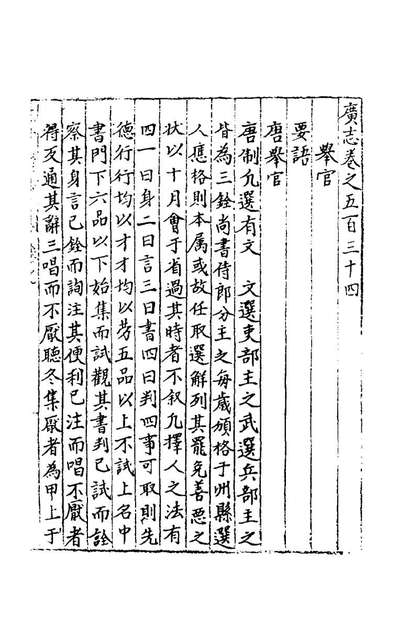 廣志卷之五百三十四
舉官
要語
唐舉官
唐制九選有文 文選吏部主之武選兵部主之
皆為三銓尚書侍郎分主之每歲頒格于州縣選
人應格則本属或故任取選解列其罷免善惡之
狀以十月會于省過其時者不叙九擇人之法有
四一曰身二曰言三曰書四曰判四事可取則先
德行行均以才才均以劳五品以上不試上名中
書門下六品以下始集而試觀其書判已試而詮
察其身言已銓而詢注其便利已注而唱不厭者
得反通其辭三唱而不厭聽冬集厭者為甲上于